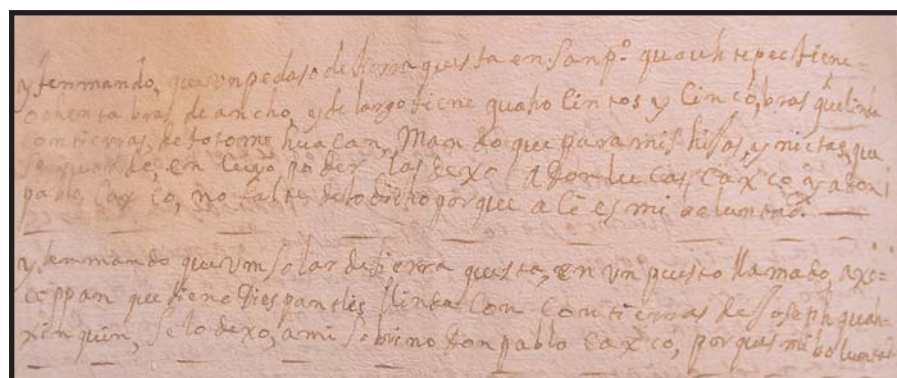 ytenmando, que un pedaso de tierra questa en Sanpº. quauhtepec tiene
ochenta bras de ancho, y de largo tiene quatro Cintos y Cinco, bras que linda
con tierras, de totomihuacan, Mando que para mis hijas, y nietas, que
se guarde, en Cuyo poder las dexo a don lucas, Caxco, y a don
pablo Caxco, no falte de lo dicho porque a Ci es mi boluntad.
ytenmando que Un solar de tierra questa, en vn puesto llamado, axo=
coppan que tiene linda Con Con tierras de Joseph quau
xinquin, se lo dexo, a mi sobrino don pablo Caxco, porques mi boluntad